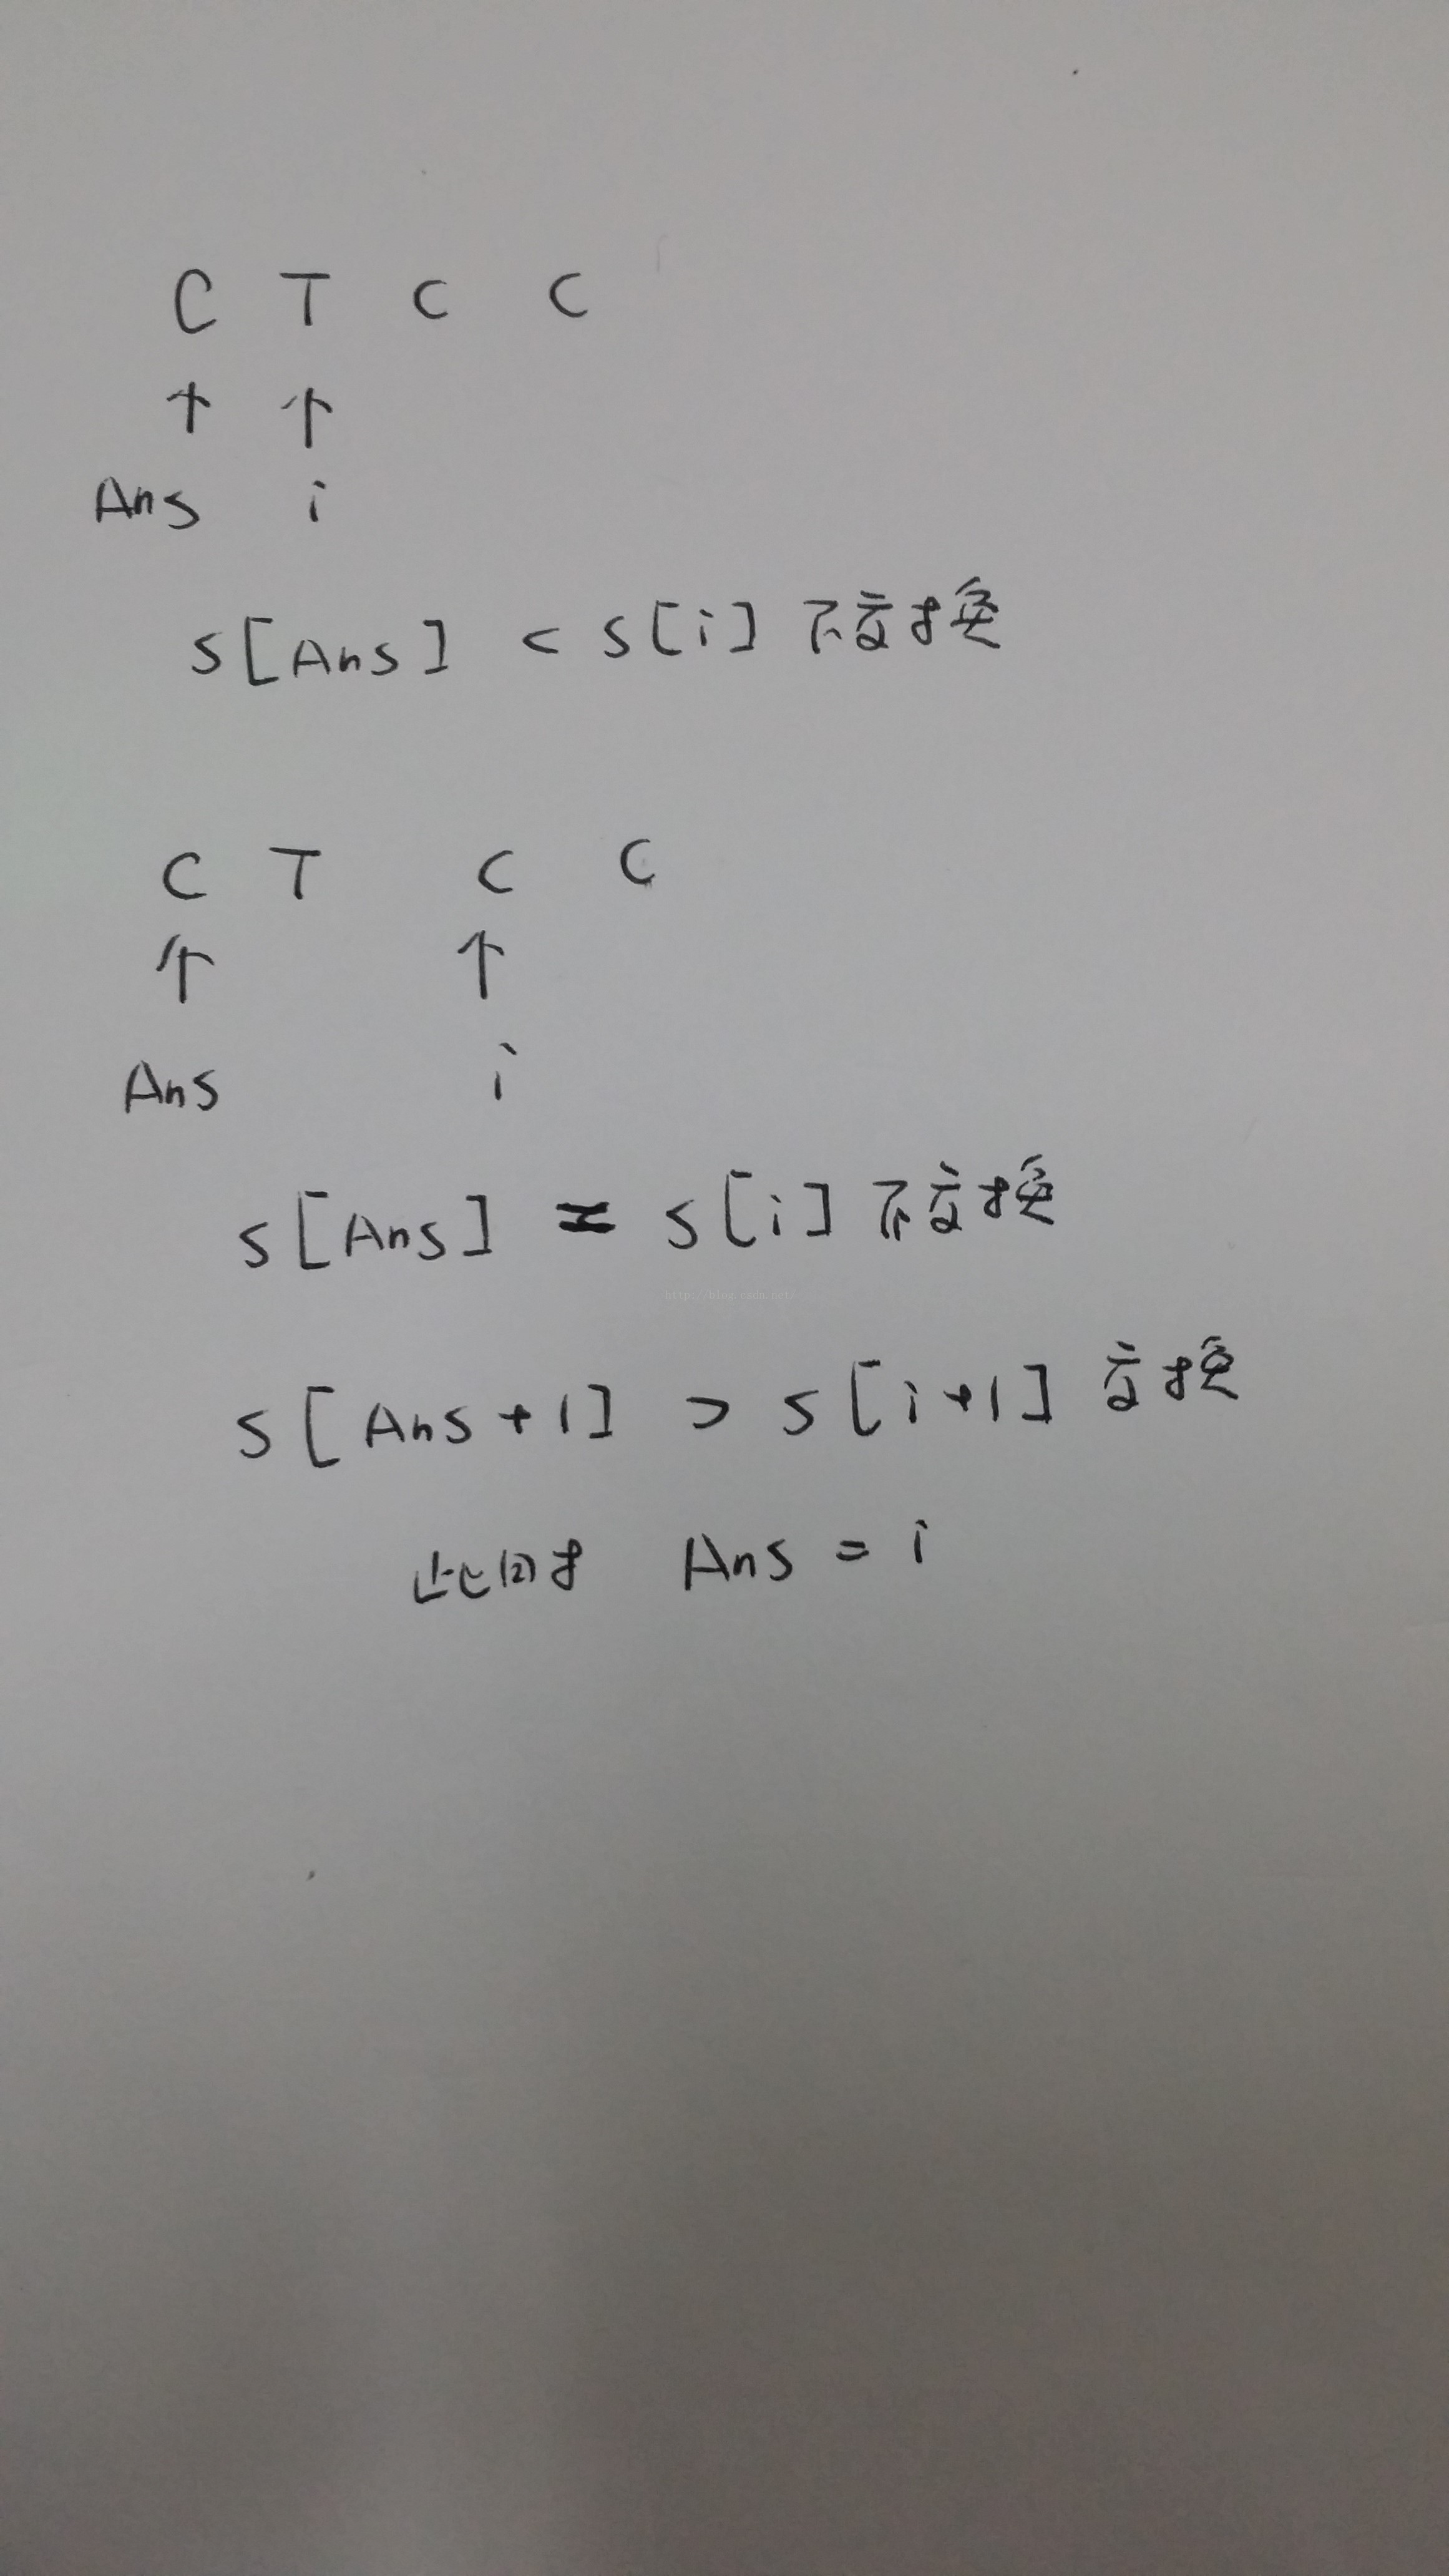 C T C C
↑ ↑
Ans i
S[Ans] < S[i] 不交换
C T C C
↑ ↑
Ans i
S[Ans] = S[i] 不交换
http://blog.csdn.net/
S[Ans+1] > S[i+1] 交换
此时 Ans = i